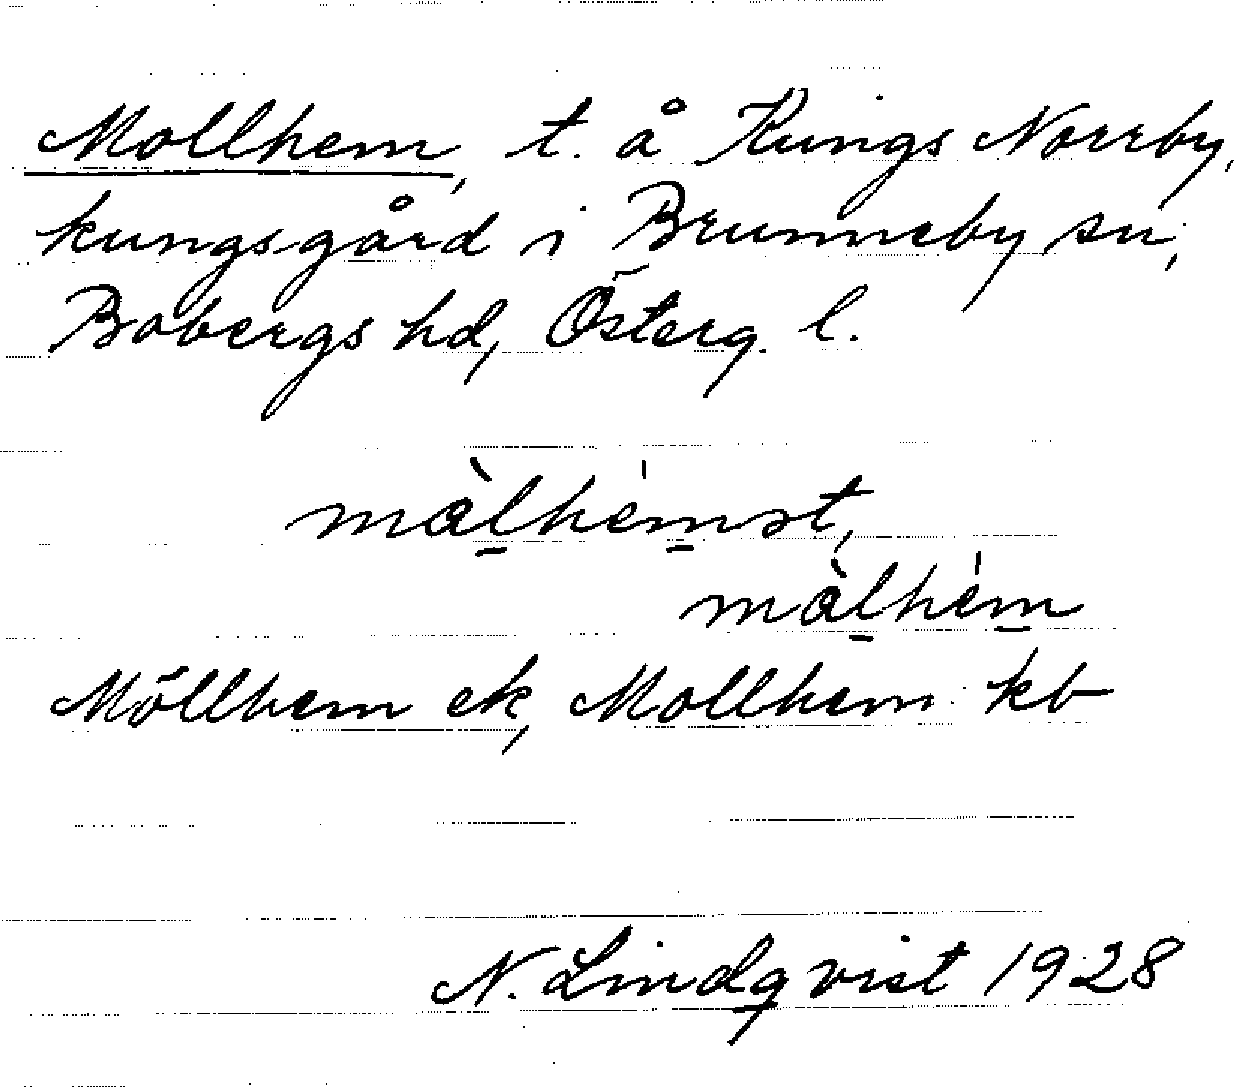 Mollhem, t. å Kungs Norrby,
kungsgård i Brunneby sn,
Bobergs hd, Österg. l.
mὰl̲hèm̲st,
mὰl̲hèm̲
Möllhem ek, Mollhem kb
N. Lindqvist 1928